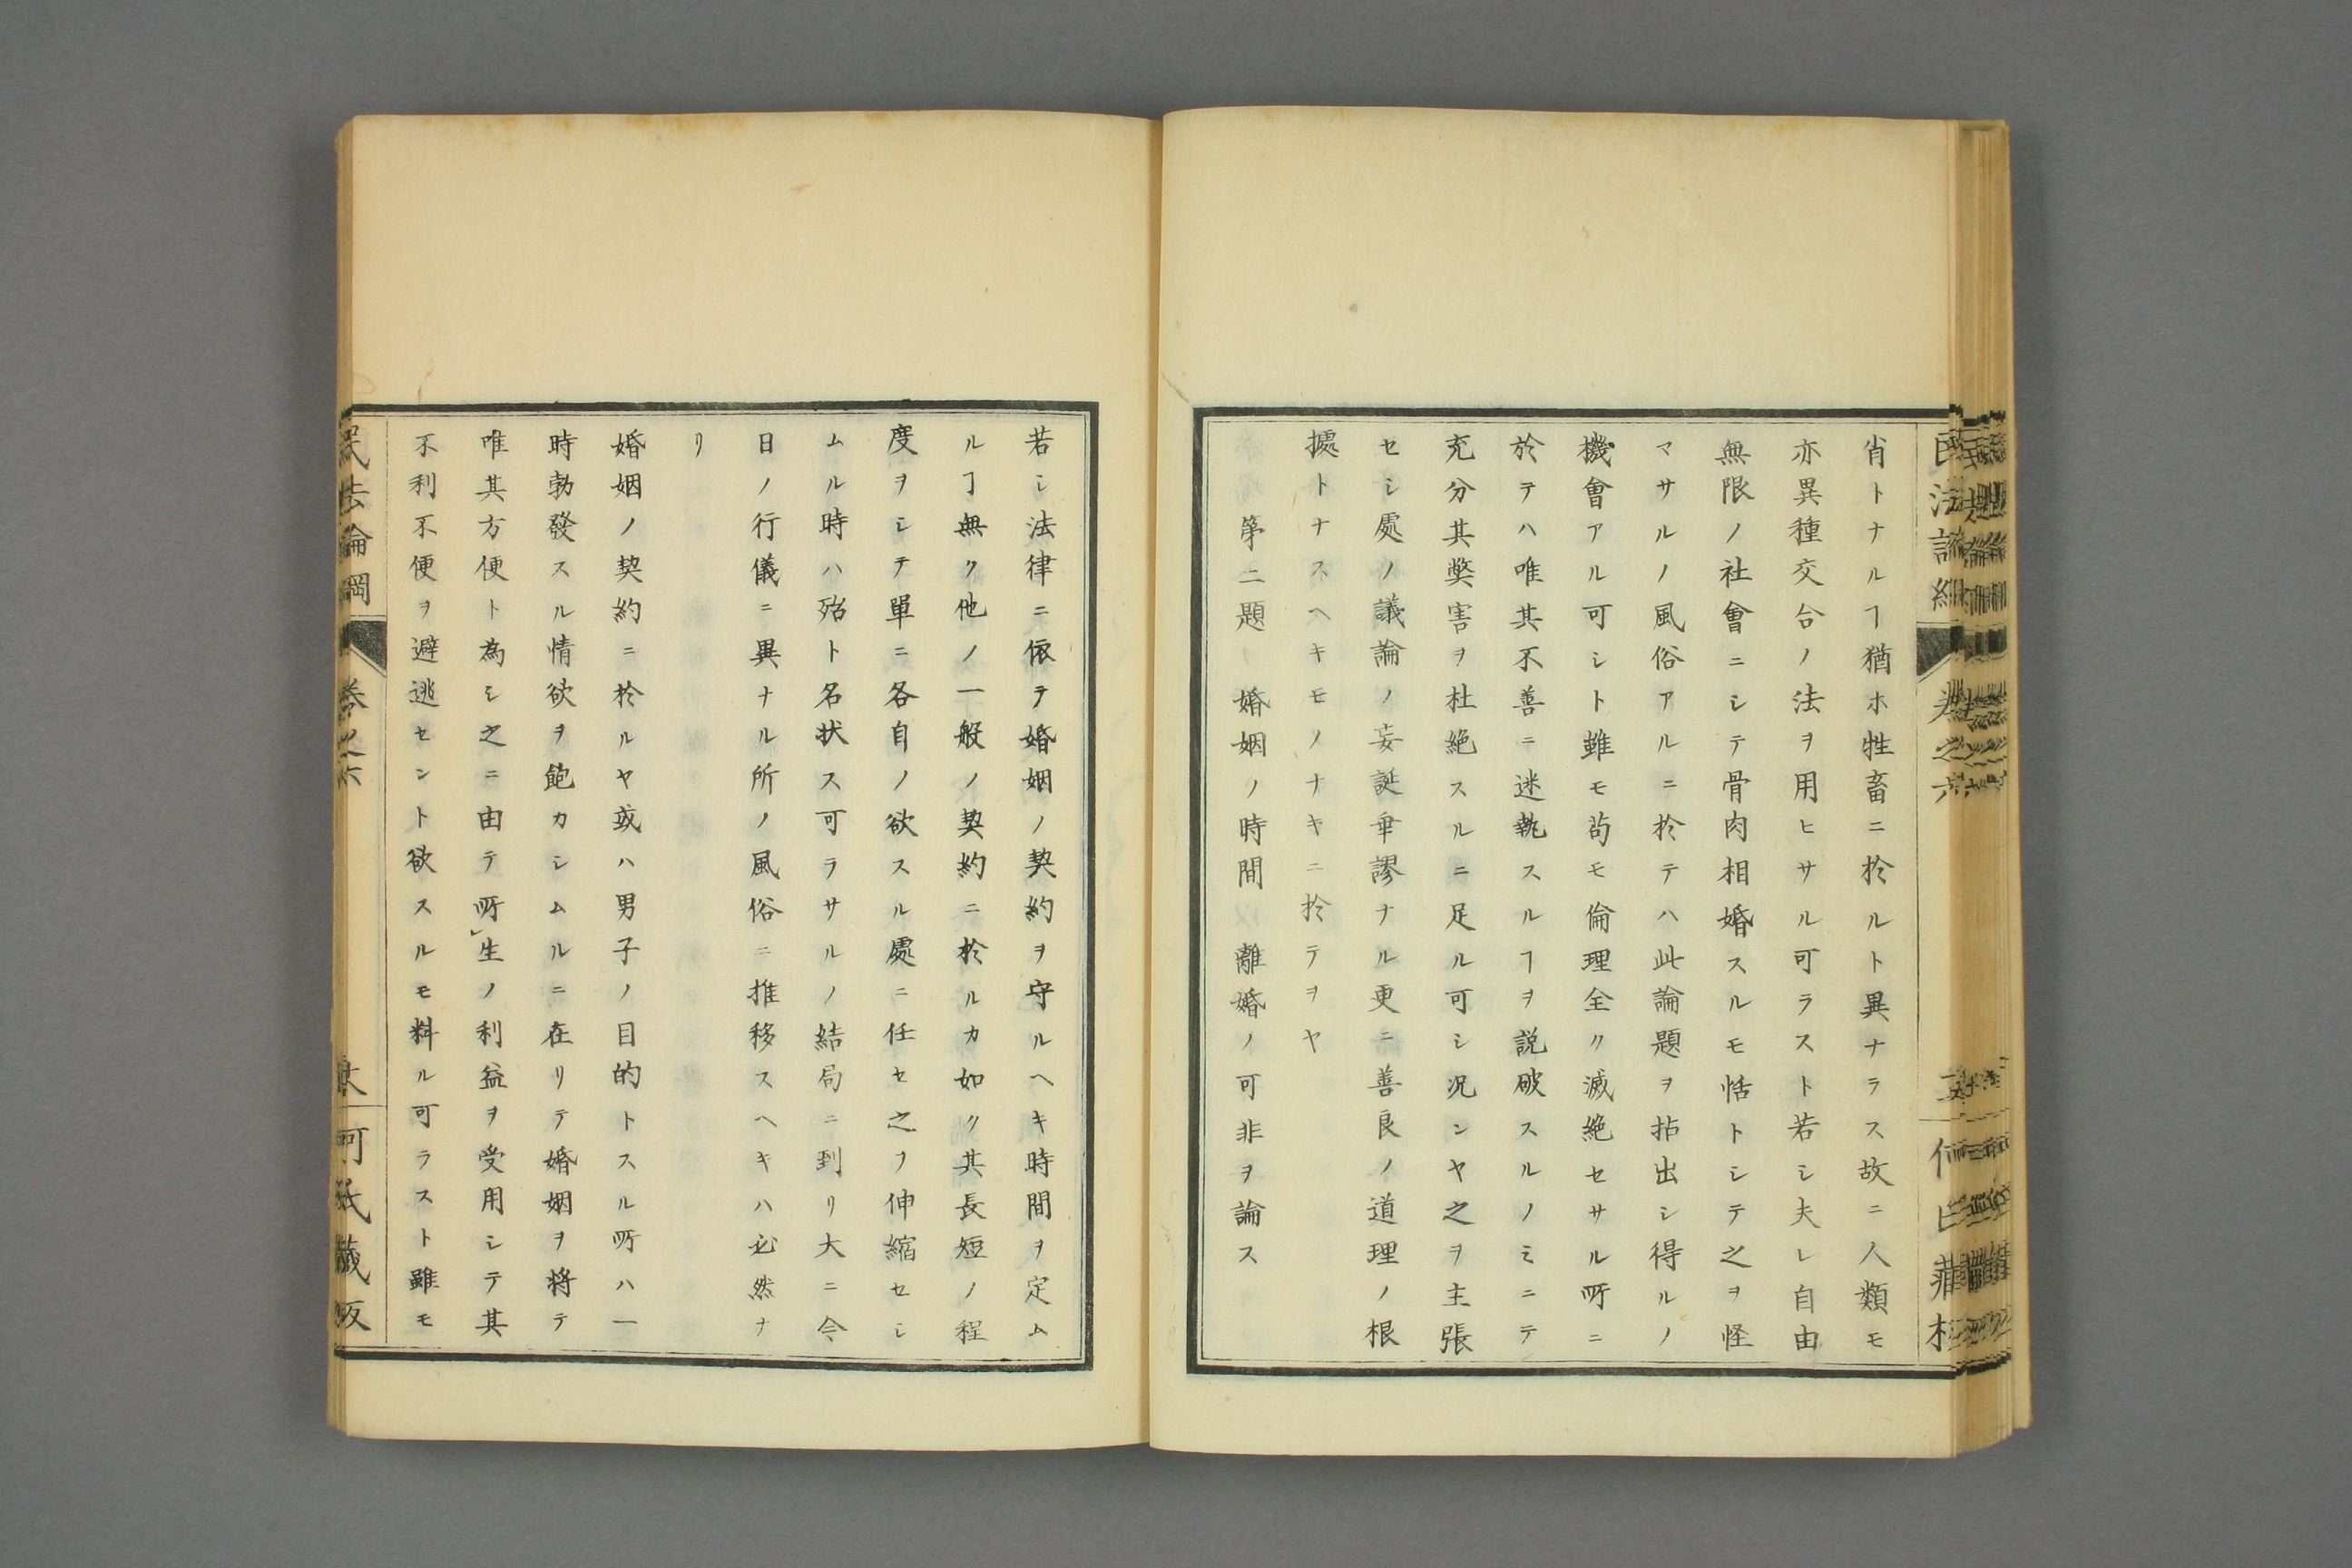 肖トナルヿ猶ホ牲畜ニ於ルト異ナラス故ニ人類モ
亦異種交合ノ法ヲ用ヒサル可ラスト若シ夫レ自由
無限ノ社會ニシテ骨肉相婚スルモ恬トシテ之ヲ怪
マサルノ風俗アルニ於テハ此論題ヲ拈出シ得ルノ
機會アル可シト雖モ苟モ倫理全ク滅絶セサル所ニ
於テハ唯其不善ニ迷執スルヿヲ説破スルノミニテ
充分其獘害ヲ杜絶スルニ足ル可シ况ンヤ之ヲ主張
セシ處ノ議論ノ妄誕乖謬ナル更ニ善良ノ道理ノ根
據トナスヘキモノナキニ於テヲヤ
第二題 婚姻ノ時間 離婚ノ可非ヲ論ス
若シ法律ニ依テ婚姻ノ契約ヲ守ルヘキ時間ヲ定ム
ルヿ無ク他ノ一般ノ契約ニ於ルカ如ク其長短ノ程
度ヲシテ單ニ各自ノ欲スル處ニ任セ之ヲ伸縮セシ
ムル時ハ殆ト名状ス可ラサルノ結局ニ到リ大ニ今
日ノ行儀ニ異ナル所ノ風俗ニ推移スヘキハ必然ナ
リ
婚姻ノ契約ニ於ルヤ或ハ男子ノ目的トスル所ハ一
時勃發スル情欲ヲ飽カシムルニ在リテ婚姻ヲ将テ
唯其方便ト為シ之ニ由テ所生ノ利益ヲ受用シテ其
不利不便ヲ避逃セント欲スルモ料ル可ラスト雖モ
民法論綱 巻之六 何氏藏版